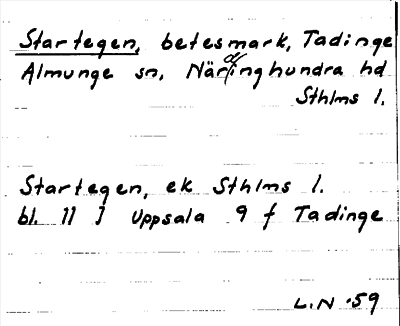 Startegen, betesmark, Tadinge
Almunge sn, Närdinghundra hd
Sthlms l.
Startegen, ek Sthlms l.
bl. 11 I Uppsala 9 f Tadinge
L.N -59